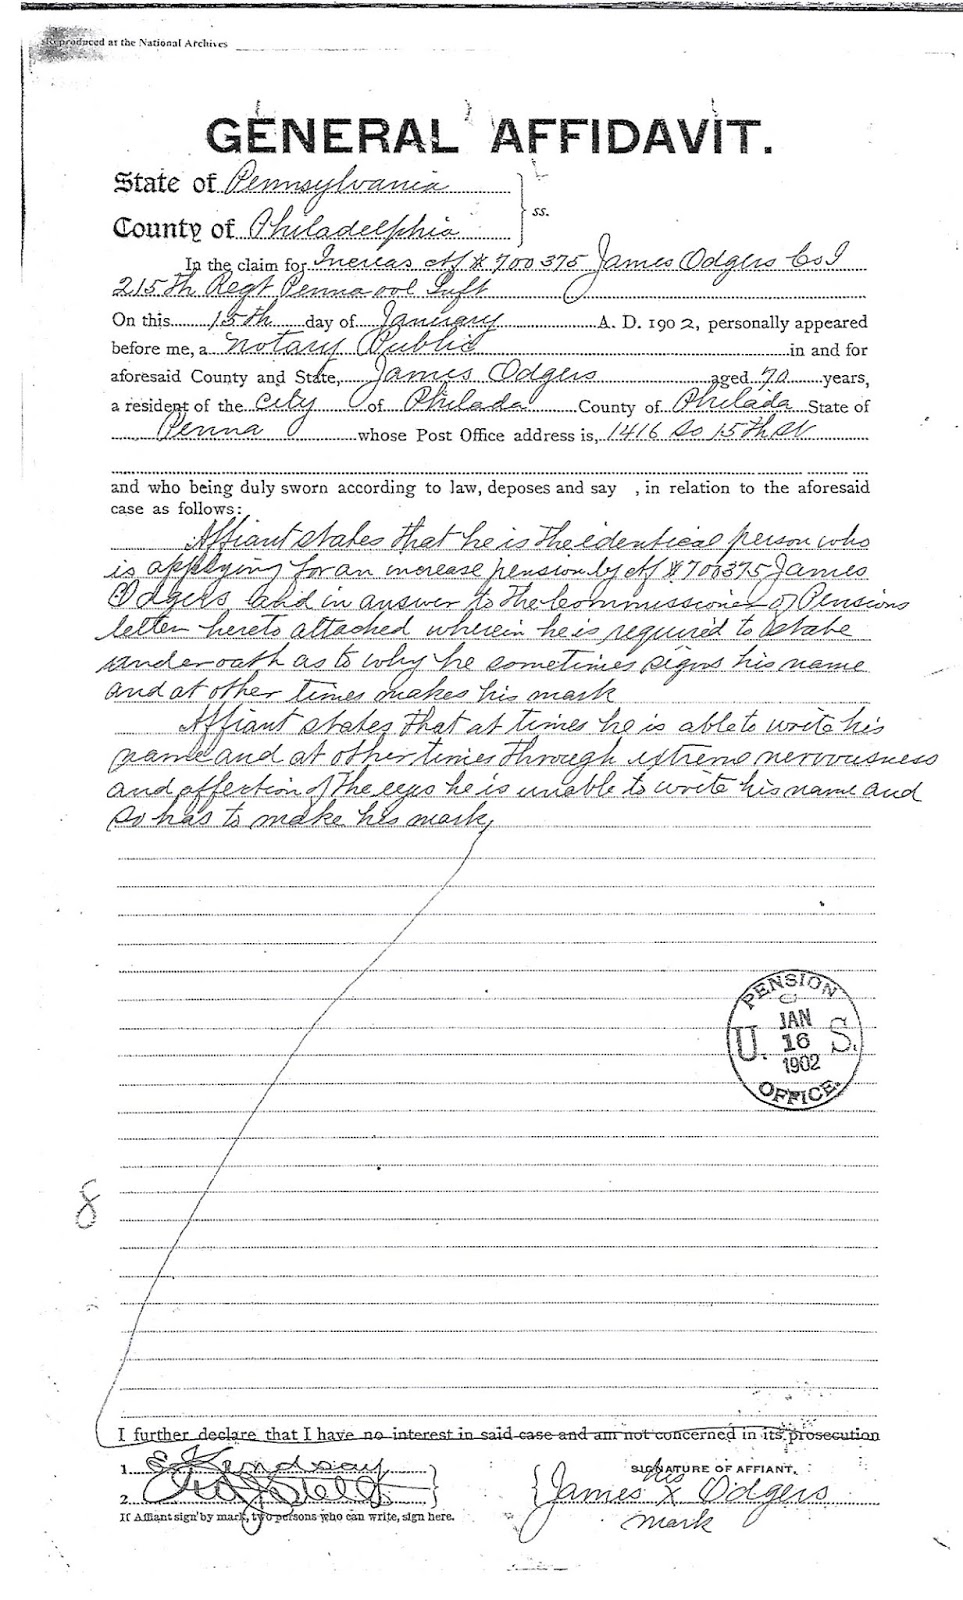 Reproduced at the National Archives
GENERAL AFFIDAVIT.
State of Pennsylvania
County of Philadelphia
ss.
In the claim for Increas ctf # 700375 James Odgers Co I
215th Regt Penna vol Inft
On this 15th day of January A. D. 1902, personally appeared
before me, a Notary Public in and for
aforesaid County and State, James Odgers aged 70 years,
a resident of the City of Philada County of Philada State of
Penna whose Post Office address is, 1416 So 15th St
and who being duly sworn according to law, deposes and say , in relation to the aforesaid
case as follows:
Affiant states that he is the identical person who
is applying for an increase pension by ctf # 700375 James
Odgers and in answer to the Commissioner of Pensions
letter hereto attached wherein he is required to state
under oath as to why he sometimes signs his name
and at other times makes his mark
Affiant states that at times he is able to write his
name and at other times through extreme nervousness
and affection of the eyes he is unable to write his name and
so has to make his mark,
PENSION
JAN
U. 16 S.
1902
OFFICE.
8
I further declare that I have no interest in said case and am not concerned in its prosecution
1.
2.
If Affiant sign by mark, two persons who can write, sign here.
SIGNATURE OF AFFIANT.
his
James X Odgers
mark